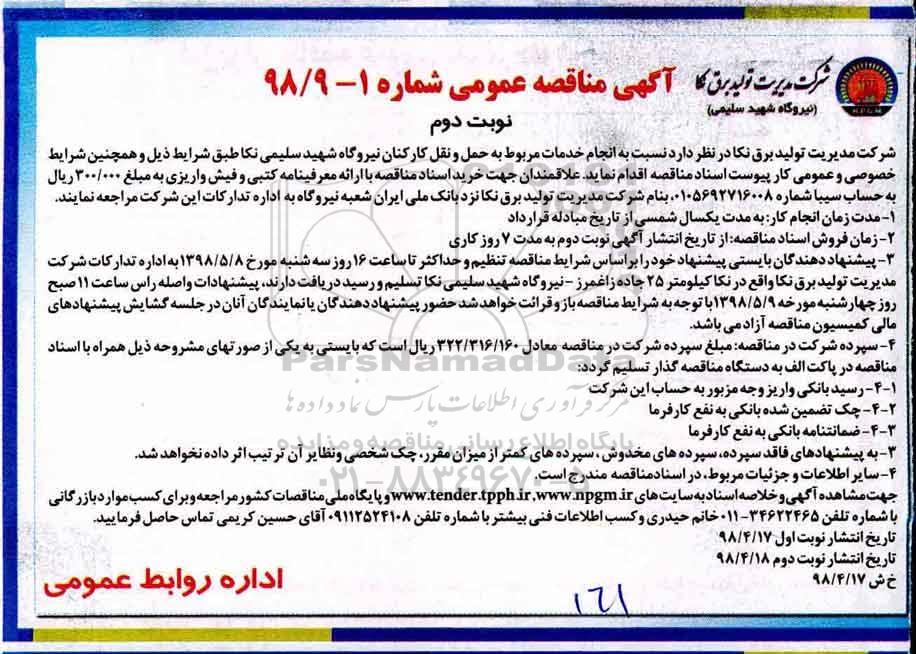 شرکت مدیریت تولید برق نکا
(نیروگاه شهید سلیمی)
N.P.G.M
آگهی مناقصه عمومی شماره ۱- ۹۸/۹
نوبت دوم
شرکت مدیریت تولید برق نکا در نظر دارد نسبت به انجام خدمات مربوط به حمل و نقل کارکنان نیروگاه شهید سلیمی نکا طبق شرایط ذیل و همچنین شرایط
خصوصی و عمومی کار پیوست اسناد مناقصه اقدام نماید. علاقمندان جهت خرید اسناد مناقصه با ارائه معرفینامه کتبی و فیش واریزی به مبلغ ۳۰۰/۰۰۰ ریال
به حساب سیبا شماره ۰۱۰۵۶۹۲۷۱۶۰۰۸، بنام شرکت مدیریت تولید برق نکا نزد بانک ملی ایران شعبه نیروگاه به اداره تدارکات این شرکت مراجعه نمایند.
۱- مدت زمان انجام کار: به مدت یکسال شمسی از تاریخ مبادله قرارداد
۲- زمان فروش اسناد مناقصه: از تاریخ انتشار آگهی نوبت دوم به مدت ۷ روز کاری
۳- پیشنهاد دهندگان بایستی پیشنهاد خود را براساس شرایط مناقصه تنظیم و حداکثر تا ساعت ۱۶ روز سه شنبه مورخ ۱۳۹۸/۵/۸ به اداره تدارکات شرکت
مدیریت تولید برق نکا واقع در نکا کیلومتر ۲۵ جاده زاغمرز - نیروگاه شهید سلیمی نکا تسلیم و رسید دریافت دارند، پیشنهادات واصله راس ساعت ۱۱ صبح
روز چهارشنبه مورخه ۱۳۹۸/۵/۹ با توجه به شرایط مناقصه باز و قرائت خواهد شد حضور پیشنهاد دهندگان یا نمایندگان آنان در جلسه گشایش پیشنهادهای
مالی کمیسیون مناقصه آزاد می باشد.
۴- سپرده شرکت در مناقصه: مبلغ سپرده شرکت در مناقصه معادل ۳۲۲/۳۱۶/۱۶۰ ریال است که بایستی به یکی از صورتهای مشروحه ذیل همراه با اسناد
مناقصه در پاکت الف به دستگاه مناقصه گذار تسلیم گردد:
۴-۱- رسید بانکی واریز وجه مزبور به حساب این شرکت
۴-۲- چک تضمین شده بانکی به نفع کارفرما
۴-۳- ضمانتنامه بانکی به نفع کارفرما
۳- به پیشنهادهای فاقد سپرده، سپرده های مخدوش، سپرده های کمتر از میزان مقرر، چک شخصی ونظایر آن ترتیب اثر داده نخواهد شد.
۴- سایر اطلاعات و جزئیات مربوط، در اسناد مناقصه مندرج است.
جهت مشاهده آگهی و خلاصه اسناد به سایت های www.tender.tpph.ir ,www.npgm.ir و پایگاه ملی مناقصات کشور مراجعه و برای کسب موارد بازرگانی
با شماره تلفن ۳۴۶۲۲۴۶۵-۰۱۱ خانم حیدری و کسب اطلاعات فنی بیشتر با شماره تلفن ۰۹۱۱۲۵۲۴۱۰۸ آقای حسین کریمی تماس حاصل فرمایید.
تاریخ انتشار نوبت اول ۹۸/۴/۱۷
تاریخ انتشار نوبت دوم ۹۸/۴/۱۸
خ ش ۹۸/۴/۱۷
اداره روابط عمومی
ParsNamadData
مرکز فرآوری اطلاعات پارس نماد داده ها
پایگاه اطلاع رسانی مناقصه و مزایده
۰۲۱-۸۸۳۴۹۶۷۰-۵